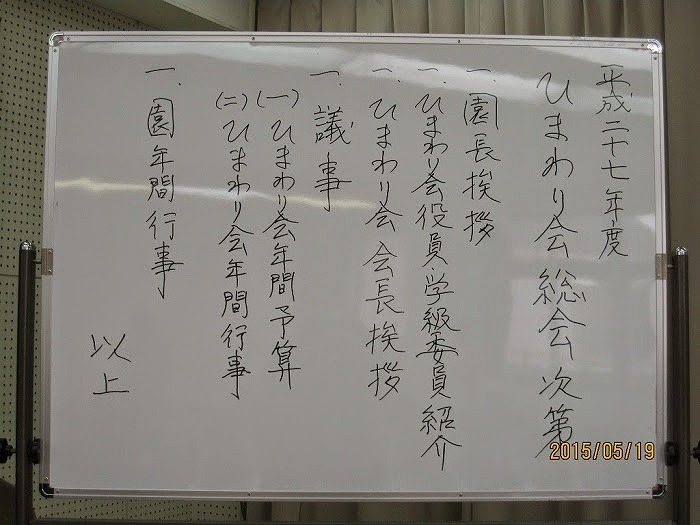 平成二十七年度
ひまわり会総会次第
一、園長挨拶
一、ひまわり会役員・学級委員紹介
一、ひまわり会会長挨拶
一、議事
(一)ひまわり会年間予算
(二)ひまわり会年間行事
一、園年間行事
以上
2015/05/19